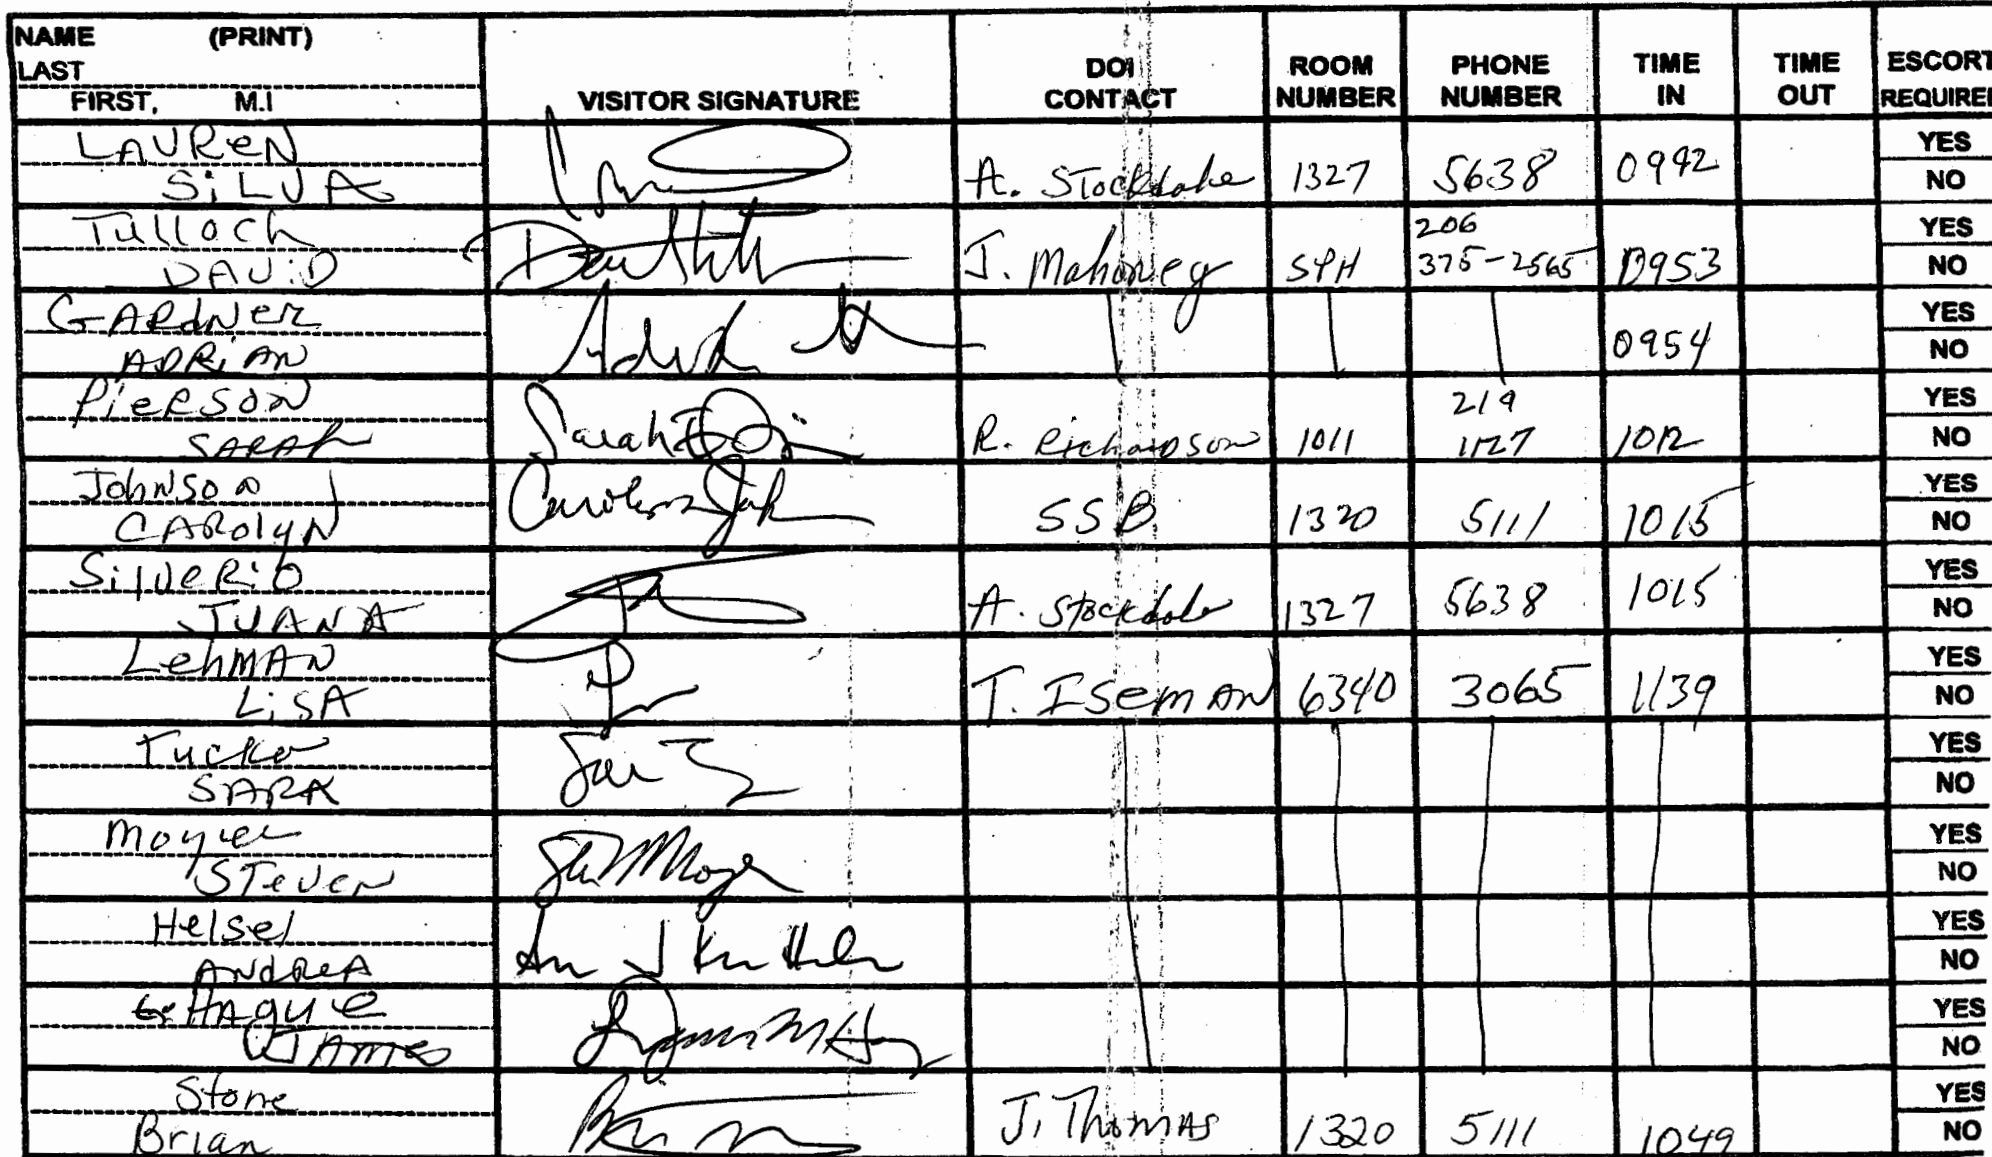 NAME (PRINT)
LAST
FIRST, M.I
VISITOR SIGNATURE
DOI
CONTACT
ROOM
NUMBER
PHONE
NUMBER
TIME
IN
TIME
OUT
ESCORT
REQUIRE
LAUREN
SiLVA
A. Stockdale 1327 5638 0942
YES
NO
Tulloch
DAViD
J. Mahoney SPH 206
375-2565 0953
YES
NO
GARdNer
ADRiAN
0954
YES
NO
PieRSON
SARAh
R. Richardson 1011 219
1127 1012
YES
NO
JohNSon
CARolyN
SSB 1320 5111 1015
YES
NO
SilveRiO
JUANA
A. Stockdale 1327 5638 1015
YES
NO
LehMAN
LiSA
T. ISemAN 6340 3065 1139
YES
NO
Tucker
SARA
YES
NO
Moyer
STeveN
YES
NO
Helsel
ANdReA
YES
NO
HAgue
JAmes
YES
NO
Stone
Brian
J. ThomAS 1320 5111 1049
YES
NO